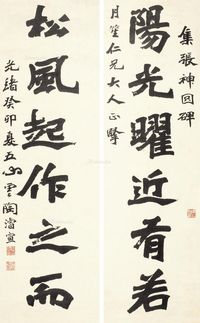 集張神冏碑
陽光曜近有若
月笙仁兄大人正擘
松風起作之而
光緒癸卯夏五心雲陶濬宣